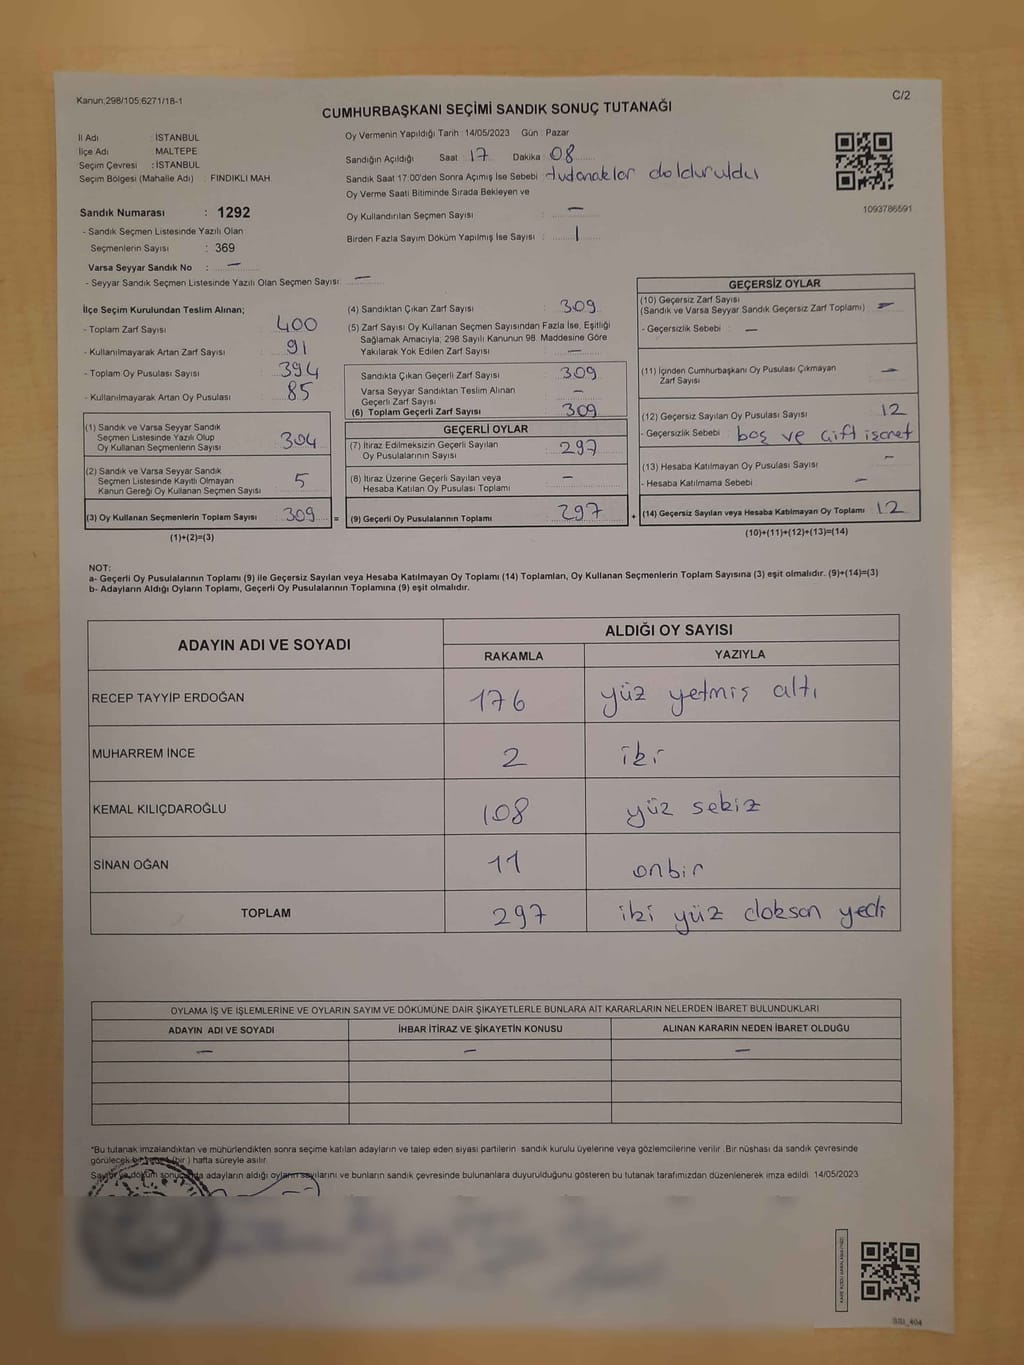 Kanun;298/105;6271/18-1
C/2
CUMHURBAŞKANI SEÇİMİ SANDIK SONUÇ TUTANAĞI
İl Adı : İSTANBUL
İlçe Adı : MALTEPE
Seçim Çevresi : İSTANBUL
Seçim Bölgesi (Mahalle Adı) : FINDIKLI MAH
Oy Vermenin Yapıldığı Tarih : 14/05/2023 Gün : Pazar
Sandığın Açıldığı Saat : 17 Dakika : 08
Sandık Saat 17:00'den Sonra Açımış İse Sebebi : tutanaklar dolduruldu
Oy Verme Saati Bitiminde Sırada Bekleyen ve
Oy Kullandırılan Seçmen Sayısı : —
Birden Fazla Sayım Döküm Yapılmış İse Sayısı : 1
1093786591
Sandık Numarası : 1292
- Sandık Seçmen Listesinde Yazılı Olan
Seçmenlerin Sayısı : 369
Varsa Seyyar Sandık No : —
- Seyyar Sandık Seçmen Listesinde Yazılı Olan Seçmen Sayısı: —
İlçe Seçim Kurulundan Teslim Alınan;
- Toplam Zarf Sayısı : 400
- Kullanılmayarak Artan Zarf Sayısı : 91
- Toplam Oy Pusulası Sayısı : 394
- Kullanılmayarak Artan Oy Pusulası : 85
(1) Sandık ve Varsa Seyyar Sandık
Seçmen Listesinde Yazılı Olup
Oy Kullanan Seçmenlerin Sayısı : 304
(2) Sandık ve Varsa Seyyar Sandık
Seçmen Listesinde Kayıtlı Olmayan
Kanun Gereği Oy Kullanan Seçmen Sayısı : 5
(3) Oy Kullanan Seçmenlerin Toplam Sayısı : 309 =
(1)+(2)=(3)
(4) Sandıktan Çıkan Zarf Sayısı : 309
(5) Zarf Sayısı Oy Kullanan Seçmen Sayısından Fazla İse, Eşitliği
Sağlamak Amacıyla; 298 Sayılı Kanunun 98. Maddesine Göre
Yakılarak Yok Edilen Zarf Sayısı : —
Sandıkta Çıkan Geçerli Zarf Sayısı : 309
Varsa Seyyar Sandıktan Teslim Alınan
Geçerli Zarf Sayısı : —
(6) Toplam Geçerli Zarf Sayısı : 309
GEÇERLİ OYLAR
(7) İtiraz Edilmeksizin Geçerli Sayılan
Oy Pusulalarının Sayısı : 297
(8) İtiraz Üzerine Geçerli Sayılan veya
Hesaba Katılan Oy Pusulası Toplamı : —
(9) Geçerli Oy Pusulalarının Toplamı : 297 +
GEÇERSİZ OYLAR
(10) Geçersiz Zarf Sayısı
(Sandık ve Varsa Seyyar Sandık Geçersiz Zarf Toplamı) : —
- Geçersizlik Sebebi : —
(11) İçinden Cumhurbaşkanı Oy Pusulası Çıkmayan
Zarf Sayısı : —
(12) Geçersiz Sayılan Oy Pusulası Sayısı : 12
- Geçersizlik Sebebi : boş ve çift işaret
(13) Hesaba Katılmayan Oy Pusulası Sayısı : —
- Hesaba Katılmama Sebebi : —
(14) Geçersiz Sayılan veya Hesaba Katılmayan Oy Toplamı : 12
(10)+(11)+(12)+(13)=(14)
NOT:
a- Geçerli Oy Pusulalarının Toplamı (9) ile Geçersiz Sayılan veya Hesaba Katılmayan Oy Toplamı (14) Toplamları, Oy Kullanan Seçmenlerin Toplam Sayısına (3) eşit olmalıdır. (9)+(14)=(3)
b- Adayların Aldığı Oyların Toplamı, Geçerli Oy Pusulalarının Toplamına (9) eşit olmalıdır.
ADAYIN ADI VE SOYADI
ALDIĞI OY SAYISI
RAKAMLA YAZIYLA
RECEP TAYYİP ERDOĞAN 176 yüz yetmiş altı
MUHARREM İNCE 2 iki
KEMAL KILIÇDAROĞLU 108 yüz sekiz
SİNAN OĞAN 11 onbir
TOPLAM 297 iki yüz doksan yedi
OYLAMA İŞ VE İŞLEMLERİNE VE OYLARIN SAYIM VE DÖKÜMÜNE DAİR ŞİKAYETLERLE BUNLARA AİT KARARLARIN NELERDEN İBARET BULUNDUKLARI
ADAYIN ADI VE SOYADI İHBAR İTİRAZ VE ŞİKAYETİN KONUSU ALINAN KARARIN NEDEN İBARET OLDUĞU
— — —
*Bu tutanak imzalandıktan ve mühürlendikten sonra seçime katılan adayların ve talep eden siyasi partilerin sandık kurulu üyelerine veya gözlemcilerine verilir. Bir nüshası da sandık çevresinde
görülecek bir yere (bir) hafta süreyle asılır.
Sayım ve döküm sonucunda adayların aldığı oyların sayılarını ve bunların sandık çevresinde bulunanlara duyurulduğunu gösteren bu tutanak tarafımızdan düzenlenerek imza edildi. 14/05/2023